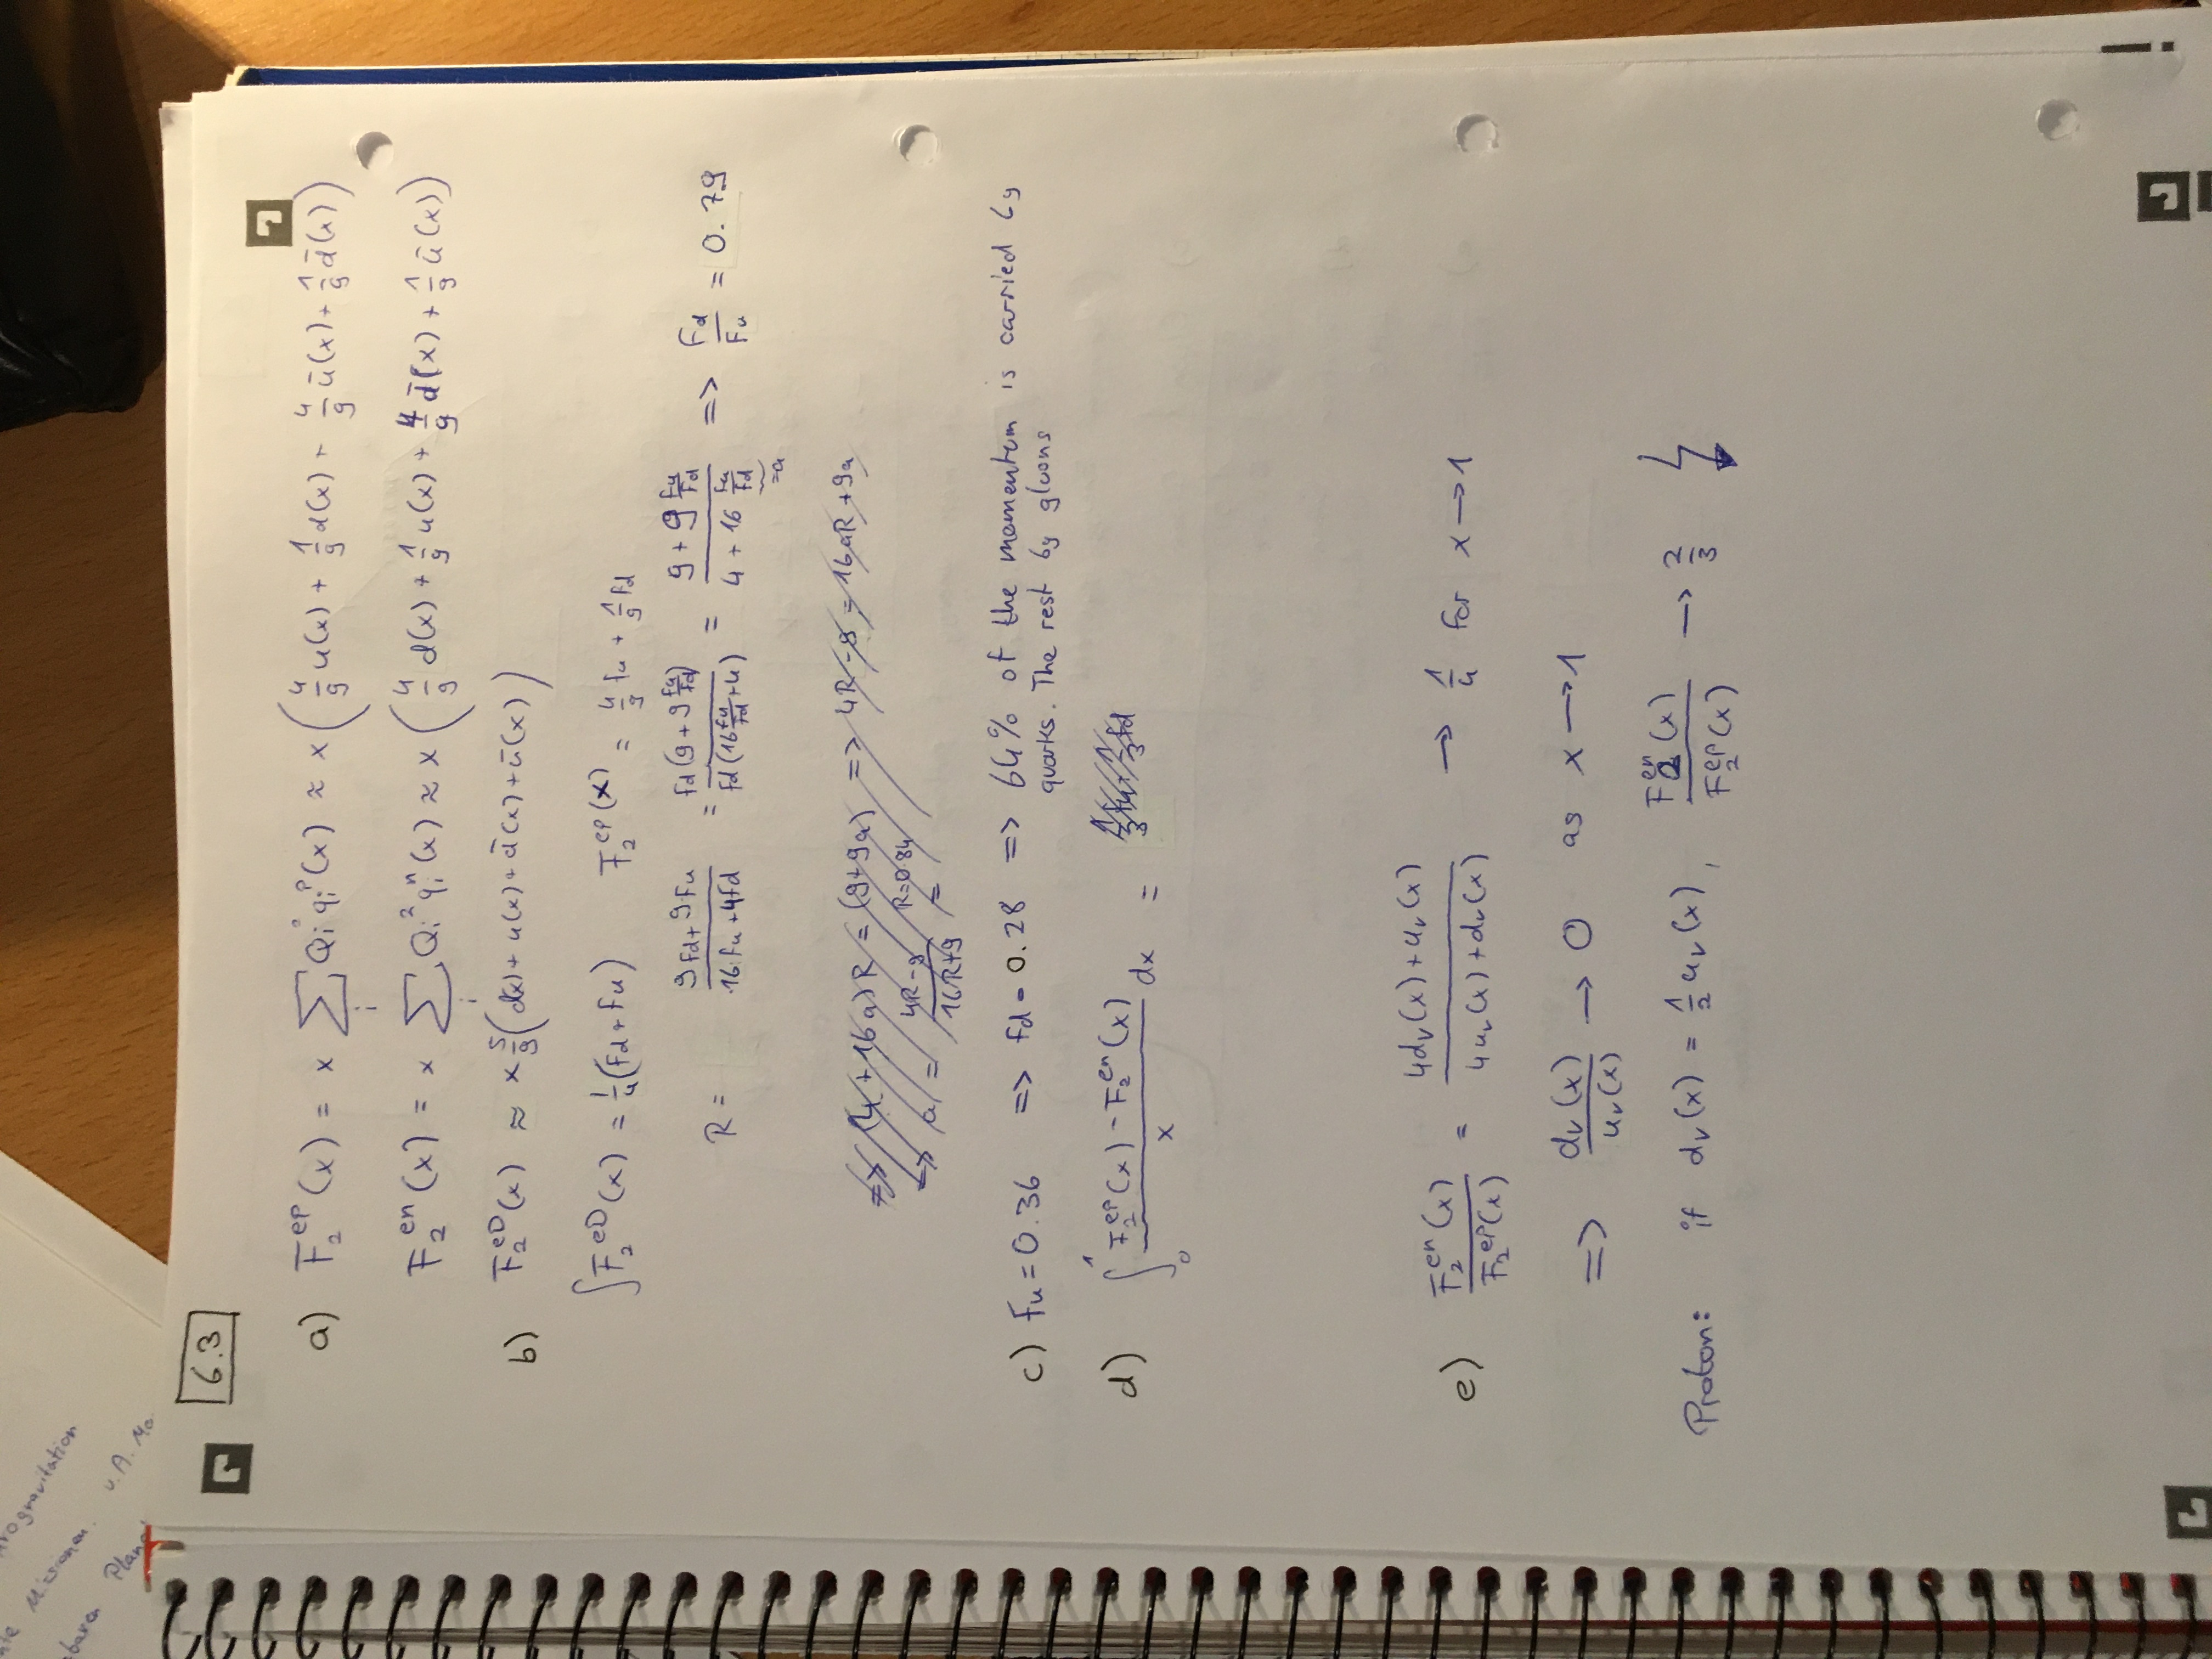 rogravitation
Missionen.
u.A. Mo
6.3
a) F₂^ep(x) = x ∑_i Q_i² q_i^p(x) ≈ x (4/9 u(x) + 1/9 d(x) + 4/9 ū(x) + 1/9 d̄(x))
F₂^en(x) = x ∑_i Q_i² q_i^n(x) ≈ x (4/9 d(x) + 1/9 u(x) + 4/9 d̄(x) + 1/9 ū(x))
b) F₂^eD(x) ≈ x 5/9 (d(x) + u(x) + d̄(x) + ū(x))
∫F₂^eD(x) = 1/4 (fd + fu) F₂^ep(x) = 4/9 fu + 1/9 fd
R = (9fd + 9fu)/(16fu + 4fd) = fd(9 + 9 fu/fd)/fd(16 fu/fd + 4) = (9 + 9 fu/fd)/(4 + 16 fu/fd) => fd/fu = 0.79
=a
=> (4 + 16a)R = (9+9a) => 4R - 9 = 16aR + 9a
=> a = (4R-9)/(16R+9) R=0.84 =
c) fu = 0.36 => fd = 0.28 => 64% of the momentum is carried by
quarks. The rest by gluons
d) ∫₀¹ (F₂^ep(x) - F₂^en(x))/x dx = 1/3 fu - 1/3 fd
e) F₂^en(x)/F₂^ep(x) = (4d_v(x) + u_v(x))/(4u_v(x) + d_v(x)) → 1/4 for x → 1
=> d_v(x)/u_v(x) → 0 as x → 1
Proton: if d_v(x) = 1/2 u_v(x), F₂^en(x)/F₂^ep(x) → 2/3